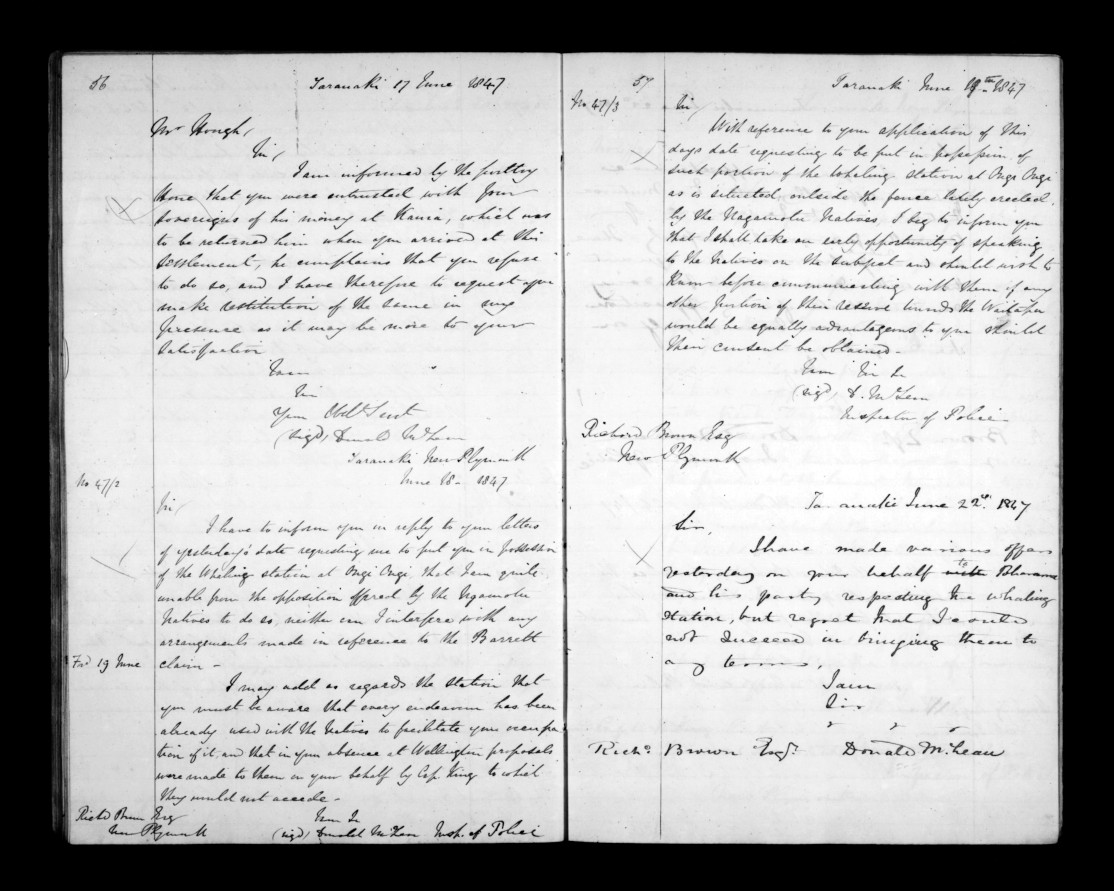 56
Taranaki 17 June 1847
Mr Hough,
Sir,
I am informed by the
Hone that you were entrusted with four
sovereigns of his money at Kawia, which was
to be returned him when you arrived at this
settlement, he complains that you refuse
to do so, and I have therefore to request you
make restitution of the same in my
presence as it may be more to your
satisfaction
I am
Sir
Your Obdt Servt
(sigd) Donald McLean
Taranaki New Plymouth
June 18 - 1847
No 47/2
Sir,
I have to inform you in reply to your letters
of yesterday's date requesting me to put you in possession
of the Whaling station at Ongi Ongi, that I am quite
unable from the opposition offered by the Ngamotu
Natives to do so, neither can I interfere with any
arrangements made in reference to the Barrett
claim -
Fwd 19 June
I may add as regards the station that
you must be aware that every endeavour has been
already used with the Natives to facilitate your occupa
tion of it, and that in your absence at Wellington proposals
were made to them on your behalf by Cap. King to which
they would not accede -
I am &c
Richd Brown Esq
New Plymouth
(sigd) Donald McLean Insp. of Police
57
Taranaki June 19th 1847
No 47/3
Sir,
With reference to your application of this
days date requesting to be put in possession of
such portion of the whaling station at Ongi Ongi
as is situated outside the fence lately erected
by the Ngamotu Natives, I beg to inform you
that I shall take an early opportunity of speaking
to the Natives on the subject and should wish to
know before communicating with them if any
other portion of their reserve towards the
would be equally advantageous to you should
their consent be obtained -
I am Sir &c
(sigd) D. McLean
Inspector of Police
Richard Brown Esq
New Plymouth
Taranakie June 22nd 1847
Sir,
I have made various offers
yesterday on your behalf with to
and his party respecting the whaling
station, but regret that I could
not succeed in bringing them to
any terms.
I am
Sir
" " "
Richd Brown Esqr. Donald McLean